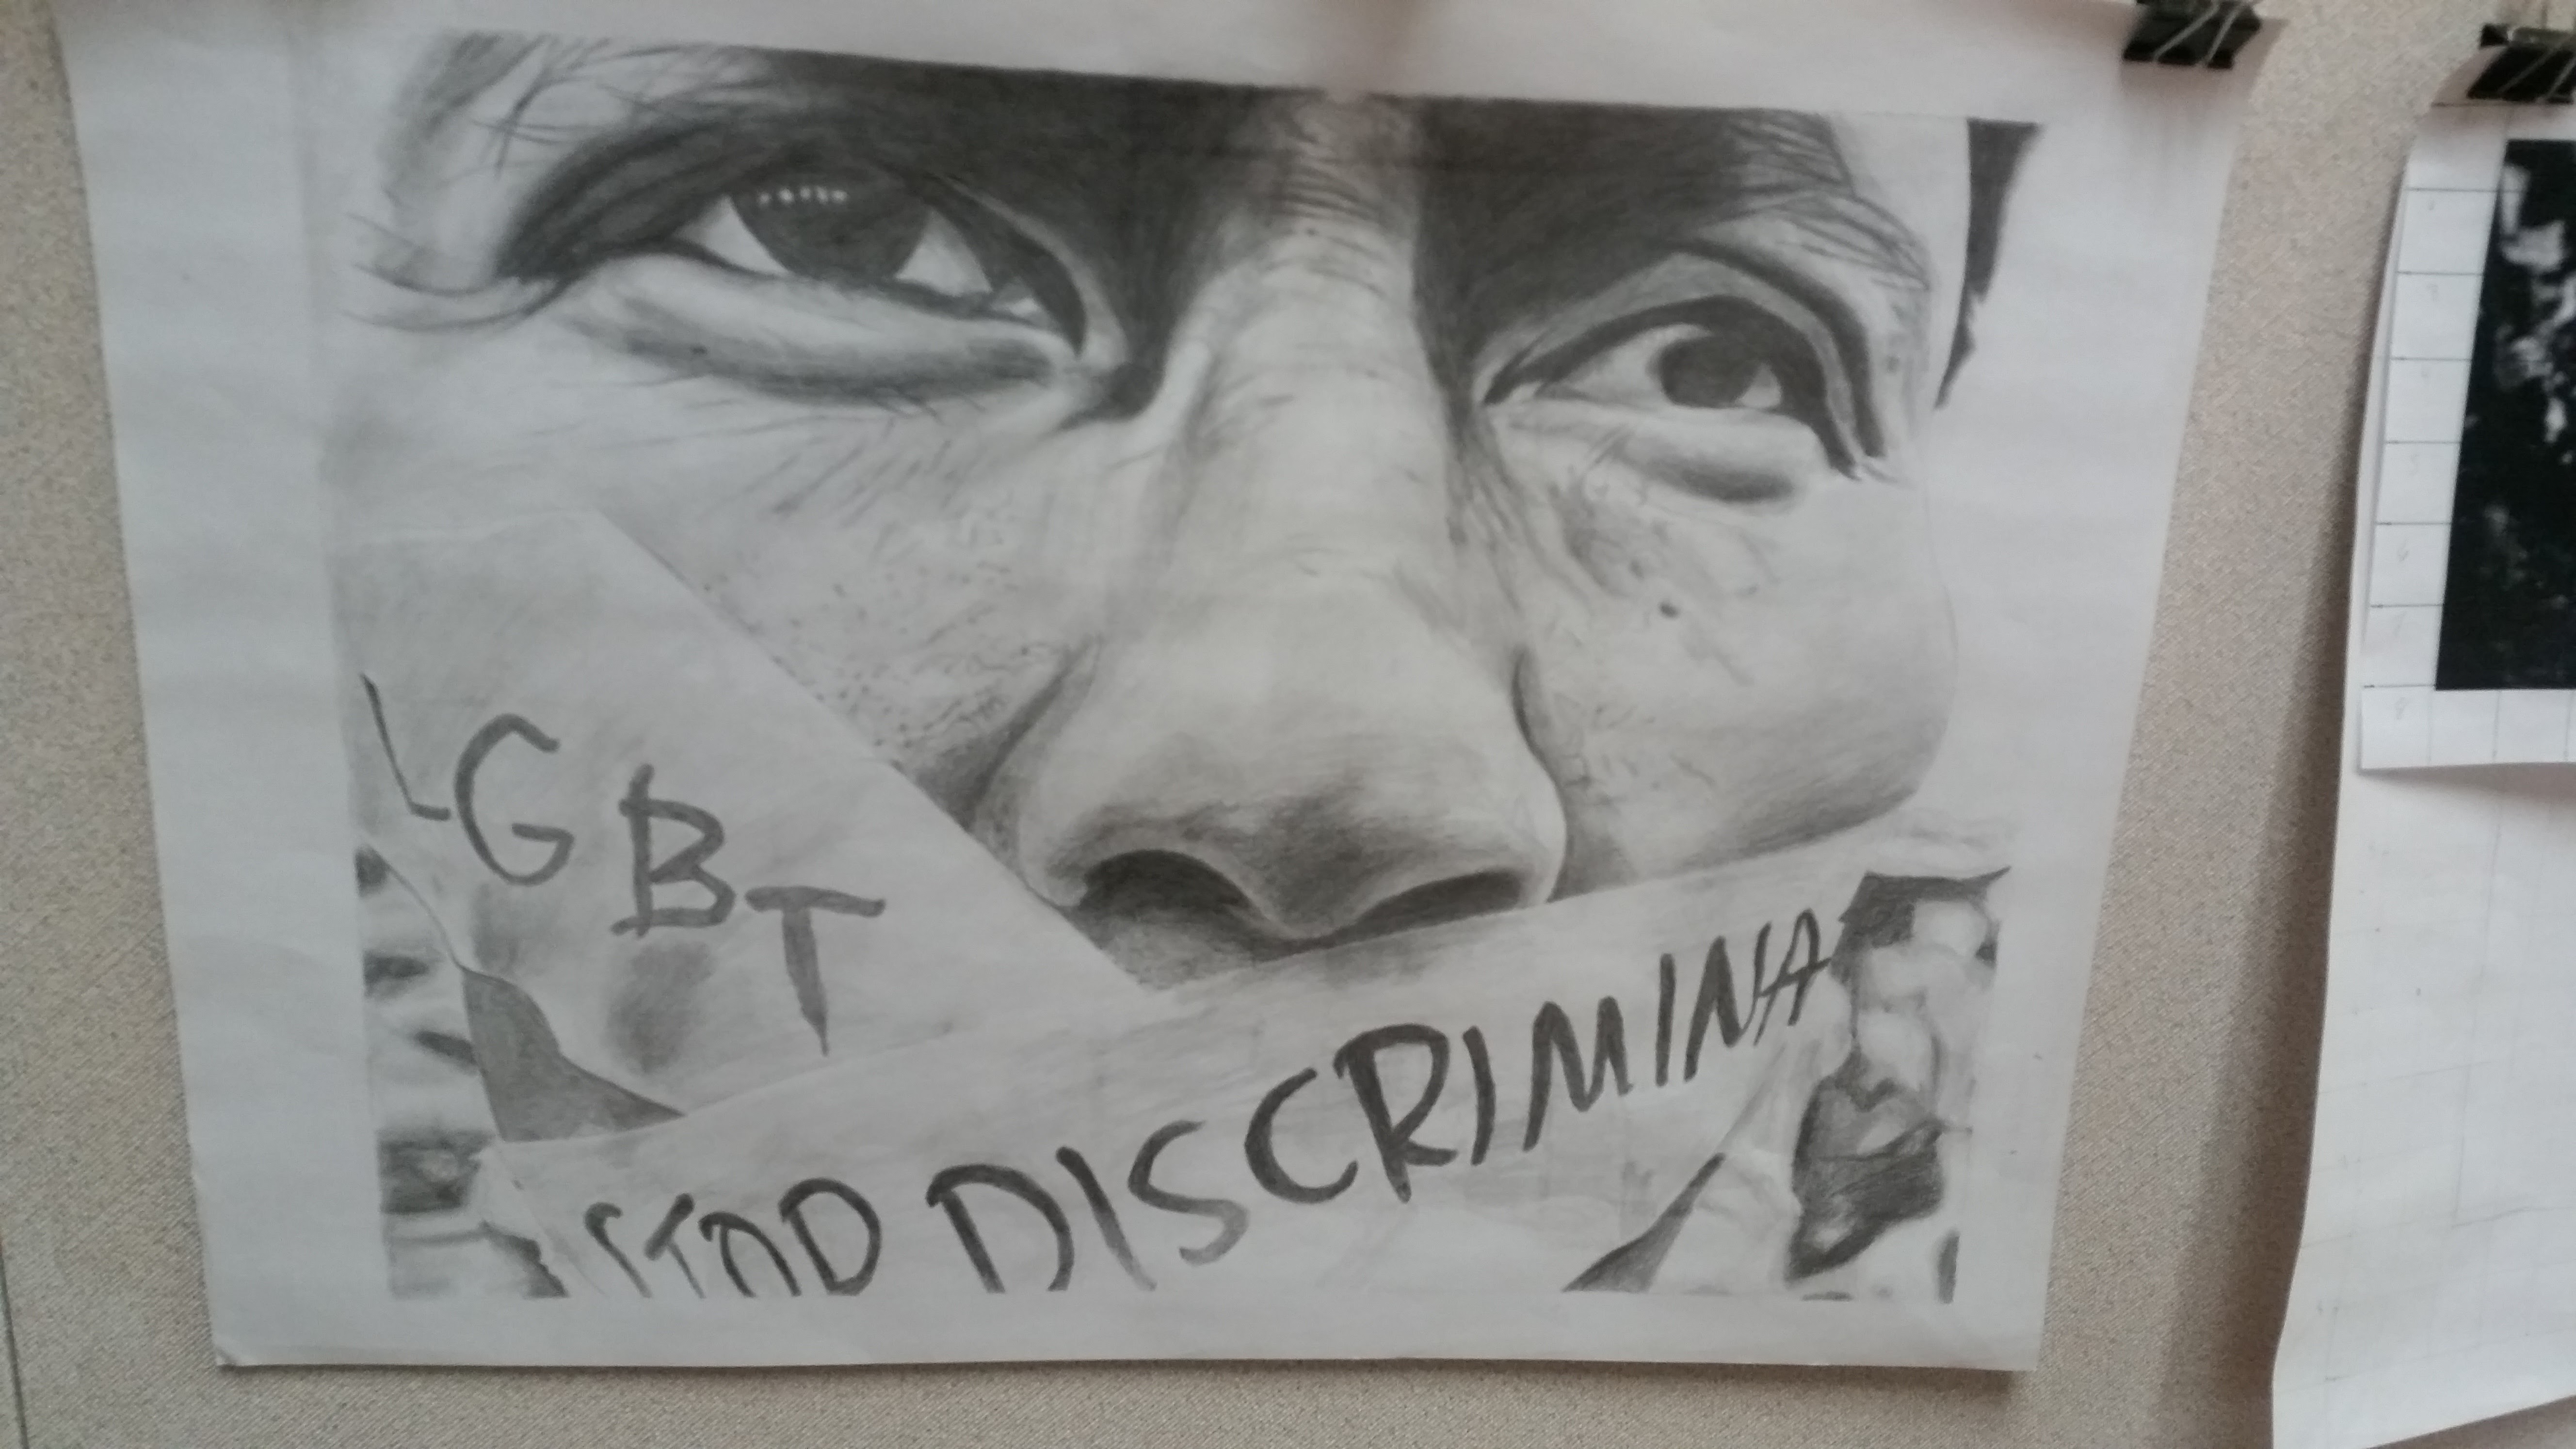 LGBT
STOP DISCRIMINA